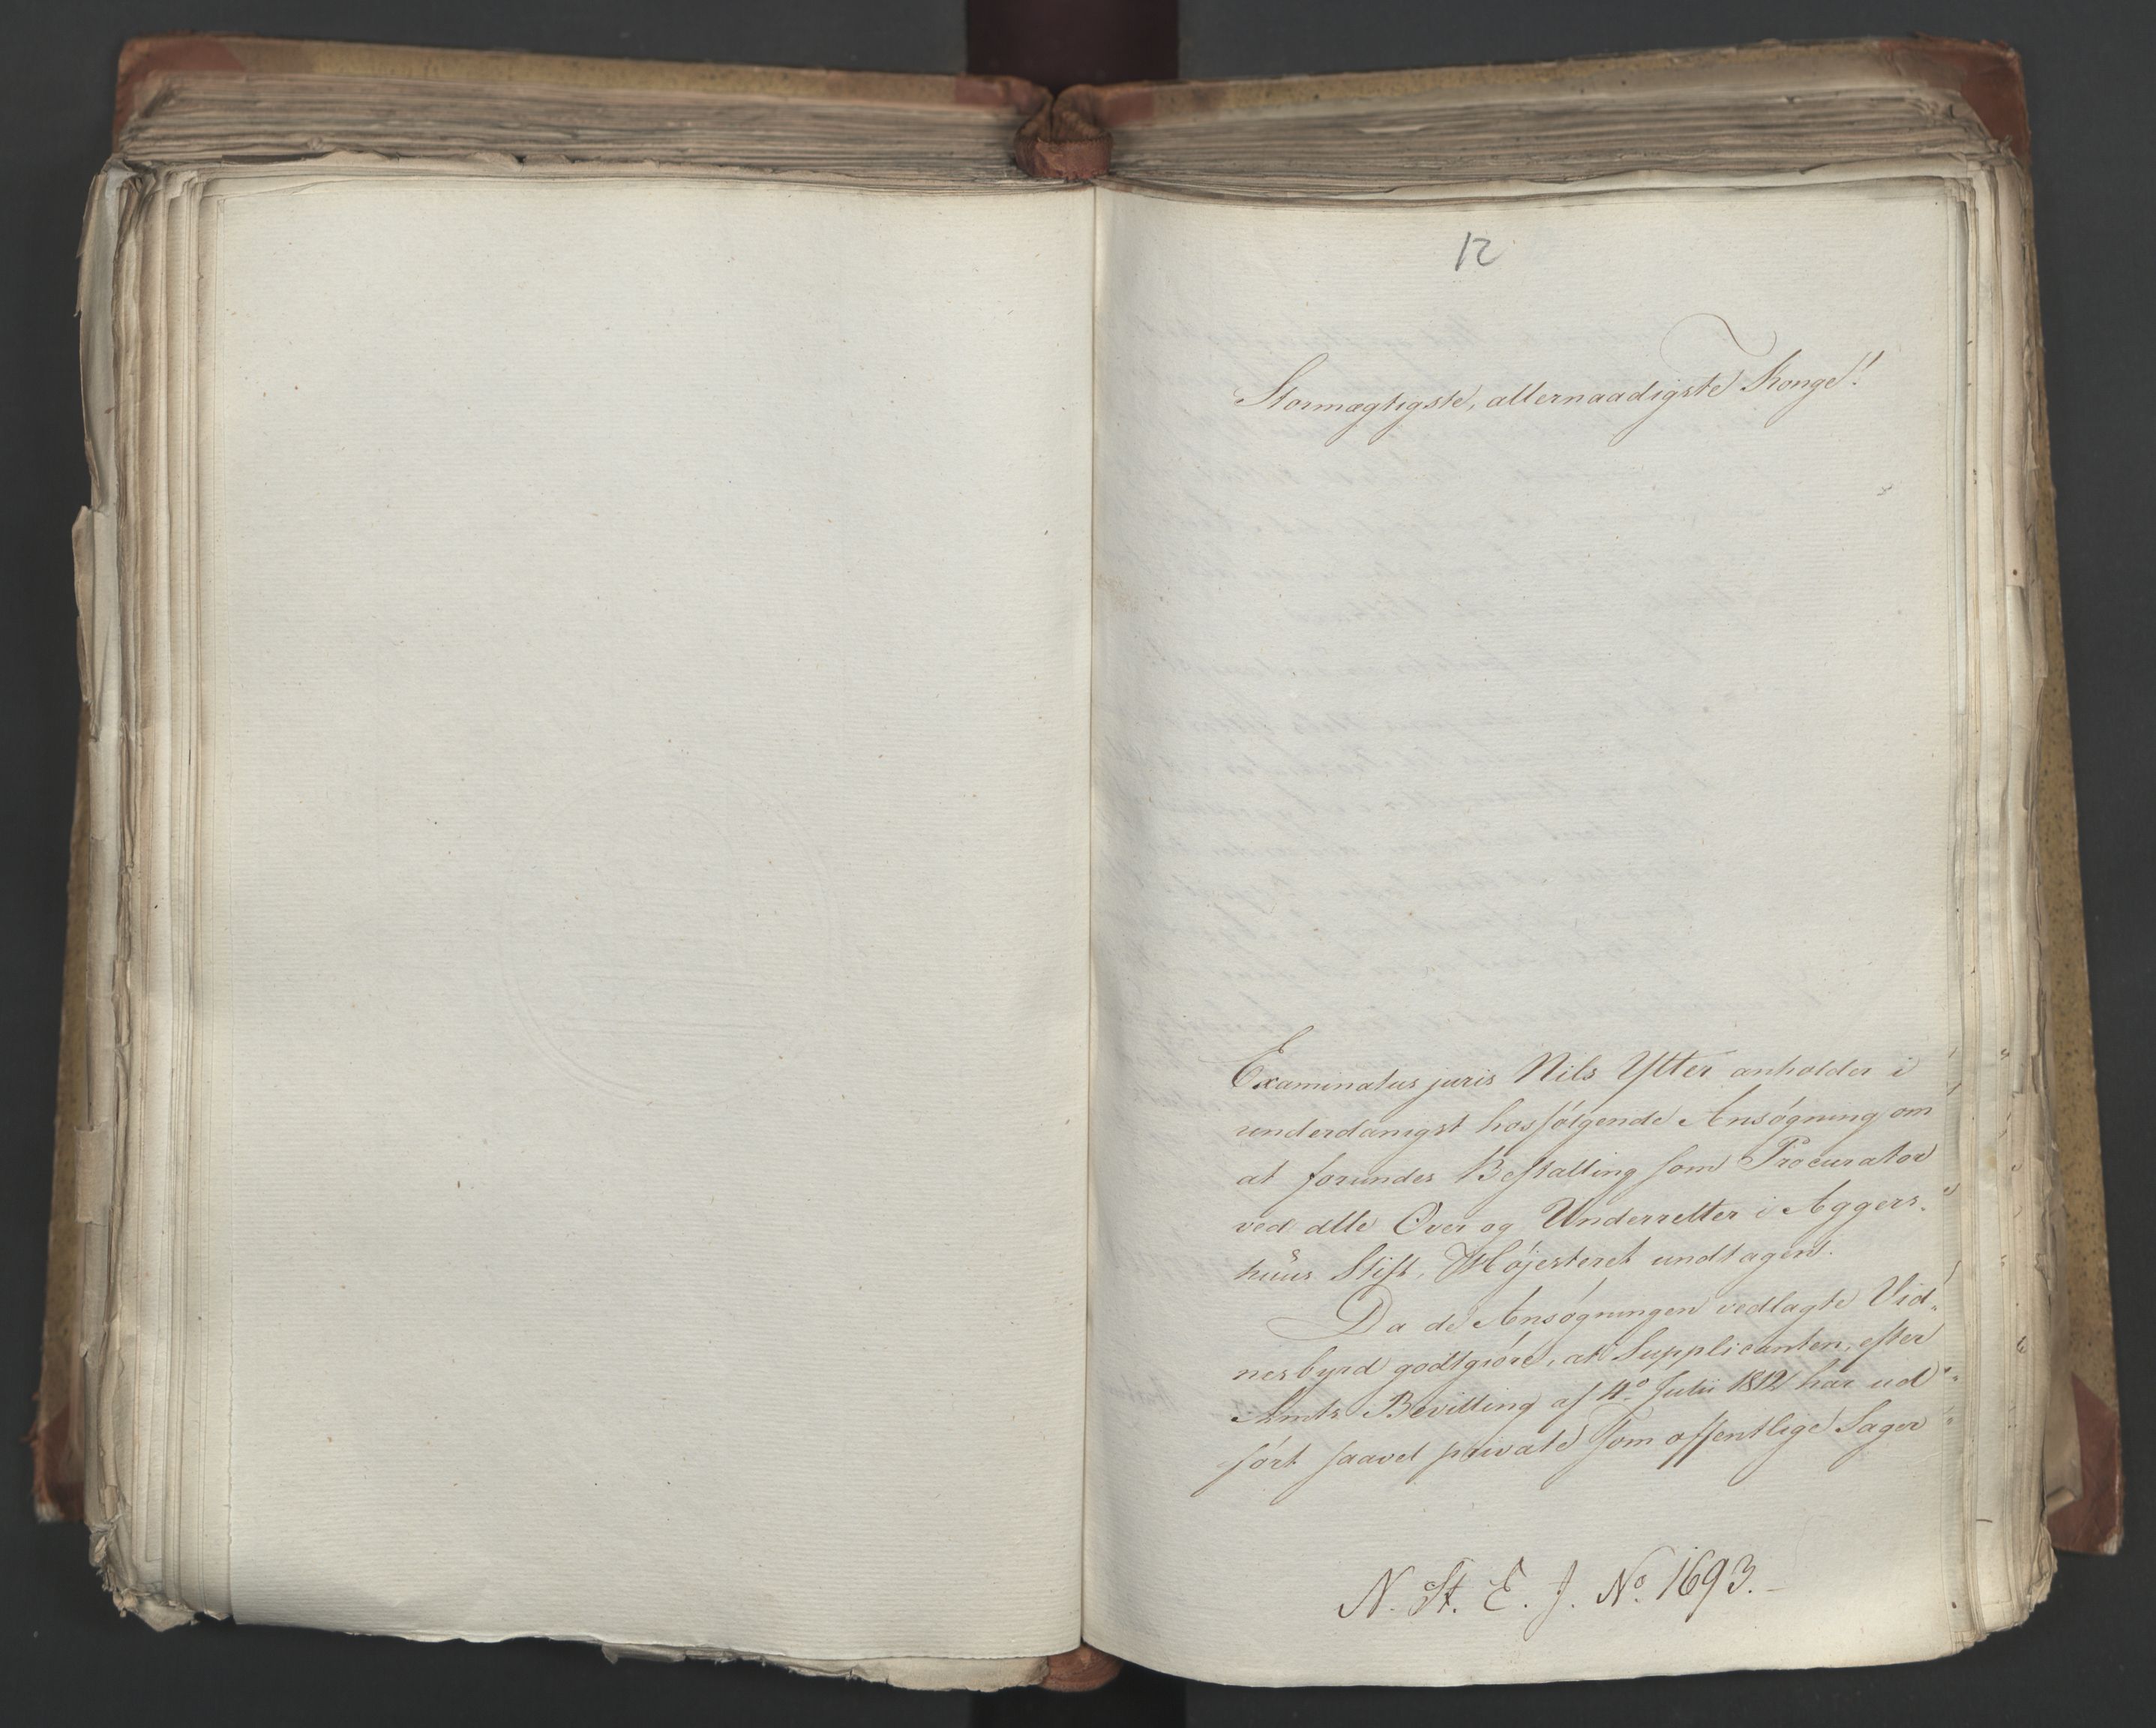 12
Stormægtigste, allernaadigste Konge!
Examinatus juris Nils Ytter anholder i
underdanigst hosfølgende Ansøgning om
at forundes Bestalling som Procurator
ved alle Over og Underretter i Aggers-
huus Stift, Høiesteret undtagen.
Da de Ansøgningen vedlagte Vid„
nesbyrd godtgiøre, at Supplicanten, efter
Amts Bevilling af 4º Julii 1812 har ud„
ført saavel private som offentlige Sager
N. St. E. J. Nº 1693.-